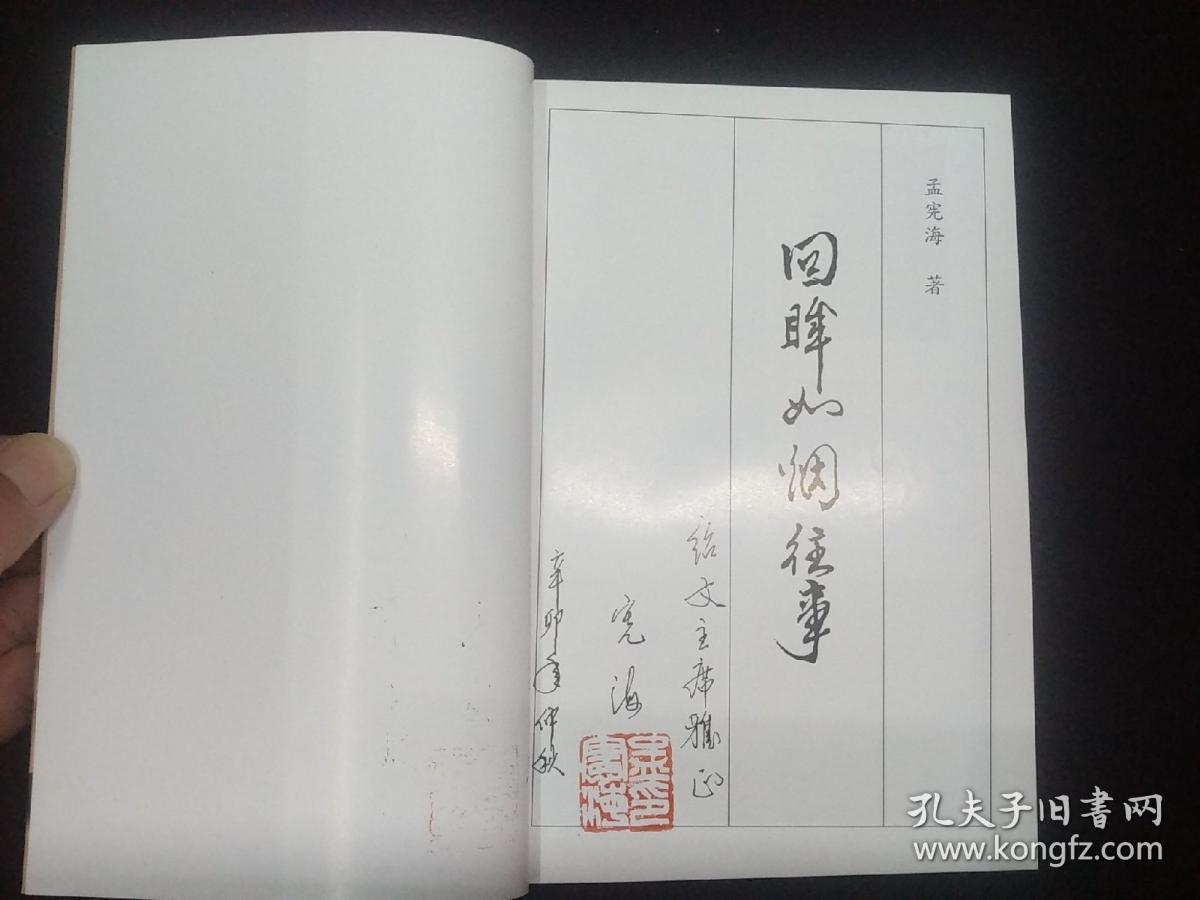 孟宪海 著
回眸如烟往事
绍文主席雅正
宪海
辛卯年仲秋
孟宪海印
孔夫子旧书网
www.kongfz.com